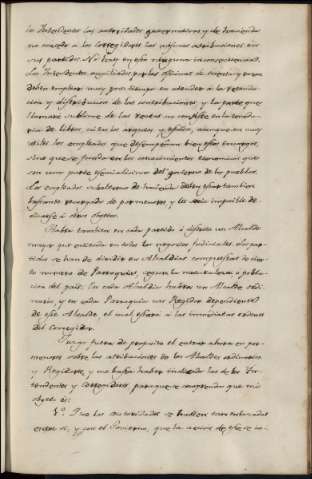 los Intendentes las autoridades gubernativas y de hacienda
no cuesta a los Corregidores las mismas atribuciones en
sus partidos. No hay en esto ninguna inconveniencia.
Los Intendentes auxiliados por las oficinas de
deben emplear muy poco tiempo en atender a la recauda-
cion y distribucion de las contribuciones y la parte que
llamare sublime de las rentas no consiste en la
de libros, ni en los arqueos y estados, aunque son muy
utiles los empleados que desempeñan bien estos encargos,
sino que se funda en los conocimientos economicos que
son una parte esencialisima del gobierno de los pueblos.
Los empleados subalternos de hacienda deben estar tambien
bastante recargados de pormenores y les seria imposible de-
dicarse á otros objetos.
Habra tambien en cada partido ó distrito un Alcalde
mayor que entienda en todos los negocios judiciales. Los par-
tidos se han de dividir en Alcaldias compuestas de cier-
to numero de Parroquias, segun la naturaleza ó pobla-
cion del pais. En cada Alcaldia habra un Alcalde ordi-
nario, y en cada Parroquia un Regidor dependiente
de este Alcalde, el cual estará á las inmediatas ordenes
del Corregidor.
Juzgo fuera de proposito el entrar ahora en por-
menores sobre las atribuciones de los Alcaldes ordinarios
y Regidores, y me basta haber indicado las de los In-
tendentes y Corregidores para que se comprenda que mi
objeto es:
1º. Que las autoridades se hallen tan enlazadas
entre si, y con el Gobierno, que la accion de este se co-